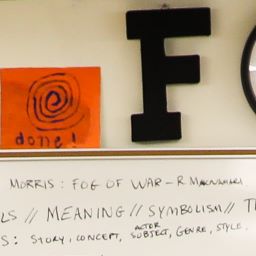 F
done!
MORRIS: FOG OF WAR - R. McNAMARA
LS // MEANING // SYMBOLISM // T
ACTOR
S: STORY, CONCEPT, SUBJECT, GENRE, STYLE,